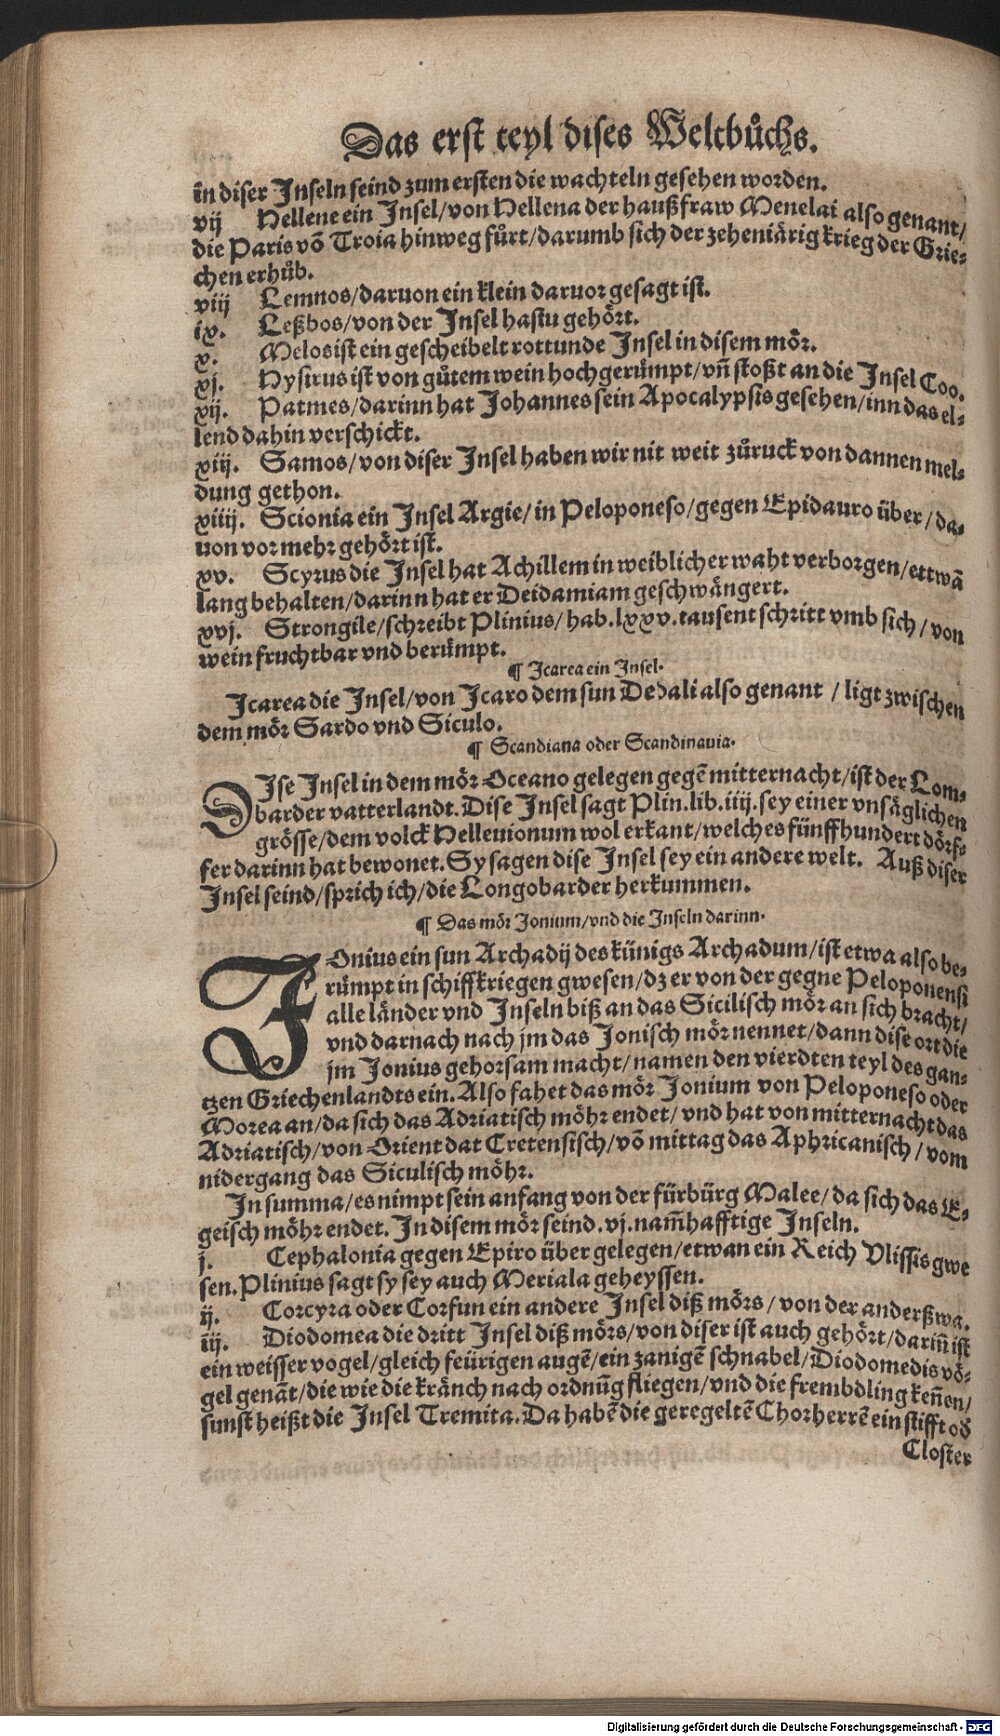 Das erst teyl dises Weltbůchs.
in diser Inseln seind zum ersten die wachteln gesehen worden.
vij Hellene ein Insel/von Hellena der haußfraw Menelai also genant/
die Paris võ Troia hinweg fůrt/darumb sich der zeheniärig krieg der Grie-
chen erhůb.
viij Lemnos/daruon ein klein daruor gesagt ist.
ix. Leßbos/von der Insel hastu gehört.
x. Melos ist ein gescheibelt rottunde Insel in disem mör.
xj. Nysirus ist von gůtem wein hoch gerümpt/vñ stoßt an die Insel Coo.
xij. Patmes/darinn hat Johannes sein Apocalypsis gesehen/inn das el-
lend dahin verschickt.
xiij. Samos/von diser Insel haben wir nit weit zůruck von dannen mel-
dung gethon.
xiiij. Scionia ein Insel Argie/in Peloponeso/gegen Epidauro über/da-
uon vor mehr gehört ist.
xv. Scyrus die Insel hat Achillem in weiblicher waht verborgen/ettwã
lang behalten/darinn hat er Deidamiam geschwängert.
xvj. Strongile/schreibt Plinius/hab.lxxv.tausent schritt vmb sich/von
wein fruchtbar vnd berümpt.
¶ Icarea ein Insel.
Icarea die Insel/von Icaro dem sun Dedali also genant/ligt zwischen
dem mör Sardo vnd Siculo.
¶ Scandiana oder Scandinauia.
DIse Insel in dem mör Oceano gelegen gegẽ mitternacht/ist der Lom-
barder vatterlandt. Dise Insel sagt Plin.lib.iiij.sey einer vnsäglichen
grösse/dem volck Helleuionum wol erkant/welches fünffhundert dörf-
fer darinn hat bewonet. Sy sagen dise Insel sey ein andere welt. Auß diser
Insel seind/sprich ich/die Longobarder herkummen.
¶ Das mör Ionium/vnd die Inseln darinn.
IOnius ein sun Archadij des künigs Archadum/ist etwa also be-
rümpt in schiffkriegen gwesen/dz er von der gegne Peloponensi
alle länder vnd Inseln biß an das Sicilisch mör an sich bracht/
vnd darnach nach jm das Ionisch mör nennet/dann dise ort die
jm Ionius gehorsam macht/namen den vierdten teyl des gan-
tzen Griechenlandts ein. Also fahet das mör Ionium von Peloponeso oder
Morea an/da sich das Adriatisch möhr endet/vnd hat von mitternacht das
Adriatisch/von Orient dat Cretensisch/võ mittag das Aphricanisch/vom
nidergang das Siculisch möhr.
In summa/es nimpt sein anfang von der fürbürg Malee/da sich das E-
geisch möhr endet. In disem mör seind.vj.nam̃hafftige Inseln.
j. Cephalonia gegen Epiro über gelegen/etwan ein Reich Vlissis gwe
sen. Plinius sagt sy sey auch Meriala geheyssen.
ij. Corcyra oder Corfun ein andere Insel diß mörs/von der anderßwa.
iij. Diodomea die dritt Insel diß mörs/von diser ist auch gehört/dariñ ist
ein weisser vogel/gleich feürigen augẽ/ein zanigẽ schnabel/Diodomedis vö-
gel genãt/die wie die kränch nach ordnũg fliegen/vnd die frembdling keñen/
sunst heißt die Insel Tremita. Da habẽ die geregeltẽ Chorherrẽ ein stifft od̃
Closter
Digitalisierung gefördert durch die Deutsche Forschungsgemeinschaft - DFG